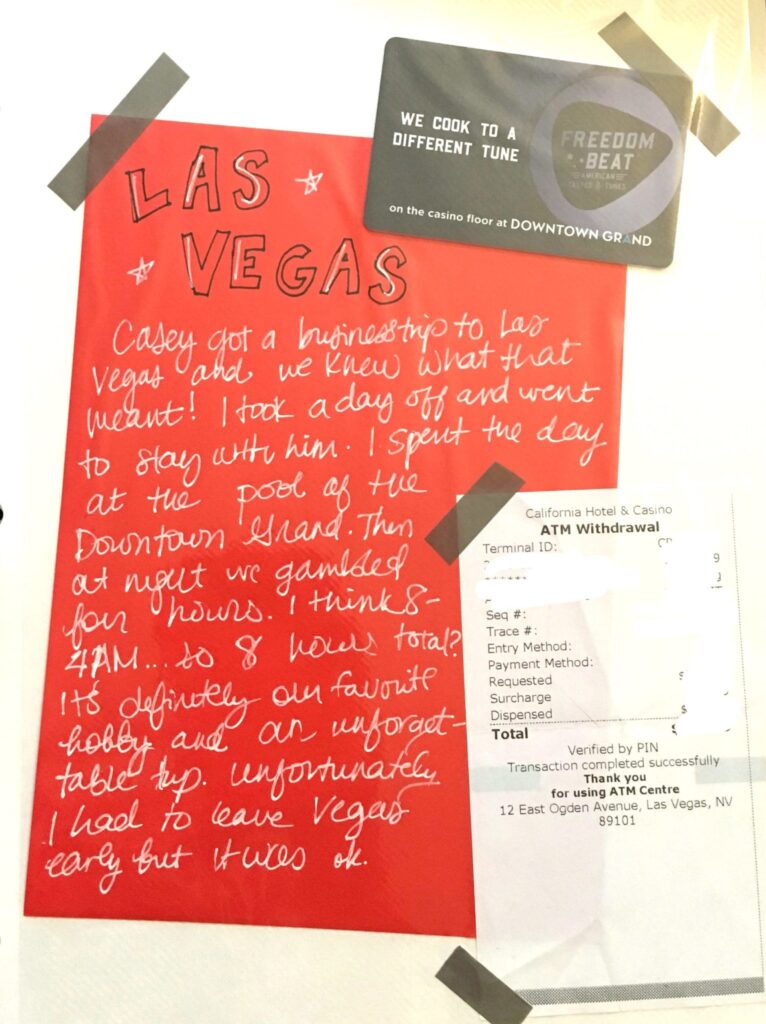 LAS
VEGAS
WE COOK TO A
DIFFERENT TUNE
FREEDOM
BEAT
AMERICAN
on the casino floor at DOWNTOWN GRAND
Casey got a businesstrip to Las
Vegas and we knew what that
meant! I took a day off and went
to stay with him. I spent the day
at the pool of the
Downtown Grand. Then
at night we gambled
for hours. I think 8-
4AM... so 8 hours total?
It's definitely our favorite
hobby and an unforget-
table trip. Unfortunately
I had to leave Vegas
early but it was ok.
California Hotel & Casino
ATM Withdrawal
Terminal ID:
Seq #:
Trace #:
Entry Method:
Payment Method:
Requested
Surcharge
Dispensed
Total
Verified by PIN
Transaction completed successfully
Thank you
for using ATM Centre
12 East Ogden Avenue, Las Vegas, NV
89101